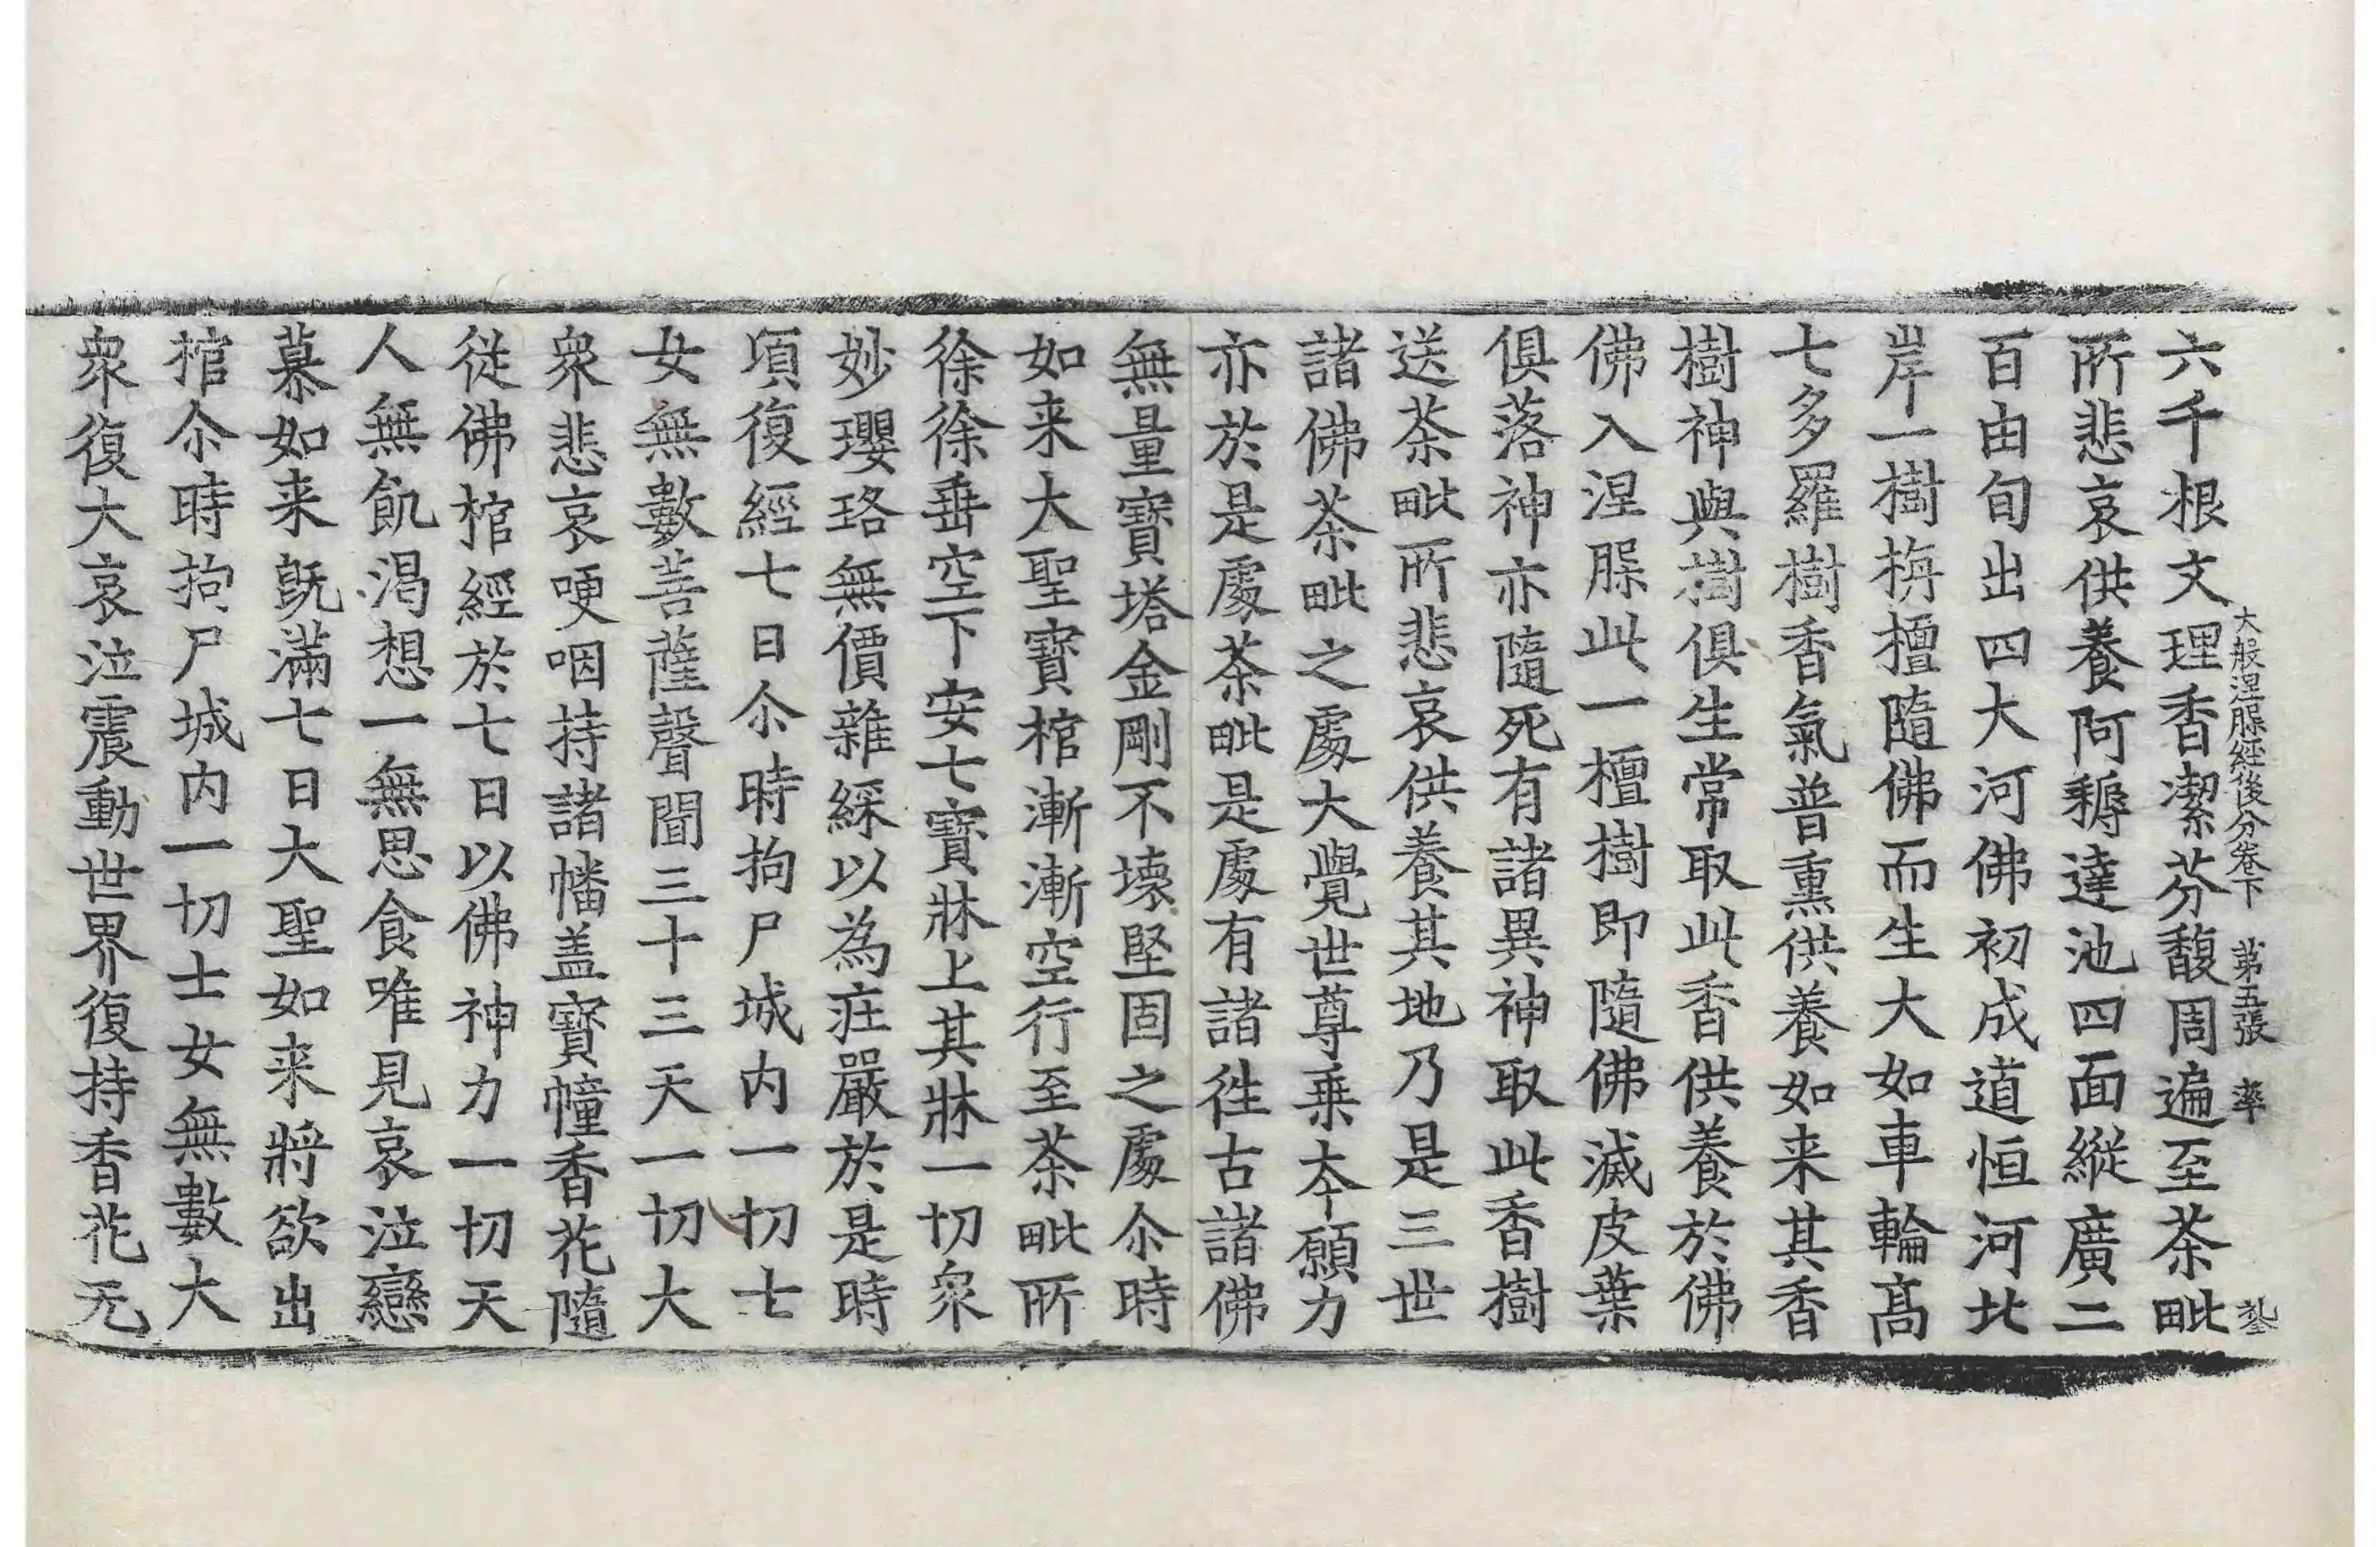 大般涅槃經後分卷下　第五張　率
六千根文理香潔芬馥周遍至茶毗
所悲哀供養阿耨達池四面縱廣二
百由旬出四大河佛初成道恒河北
岸一樹栴檀隨佛而生大如車輪高
七多羅樹香氣普熏供養如来其香
樹神與樹俱生常取此香供養於佛
佛入涅槃此一檀樹即隨佛滅皮葉
俱落神亦隨死有諸異神取此香樹
送茶毗所悲哀供養其地乃是三世
諸佛茶毗之處大覺世尊乗本願力
亦於是處茶毗是處有諸徃古諸佛
無量寶塔金剛不壞堅固之處尒時
如来大聖寶棺漸漸空行至茶毗所
徐徐垂空下安七寶牀上其牀一切衆
妙瓔珞無價雜綵以為莊嚴於是時
項復經七日尒時拘尸城内一切士
女無數菩薩聲聞三十三天一切大
衆悲哀哽咽持諸幡盖寶幢香花隨
從佛棺經於七日以佛神力一切天
人無飢渇想一無思食唯見哀泣戀
慕如来旣滿七日大聖如来將欲出
棺尒時拘尸城内一切士女無數大
衆復大哀泣震動世界復持香花无